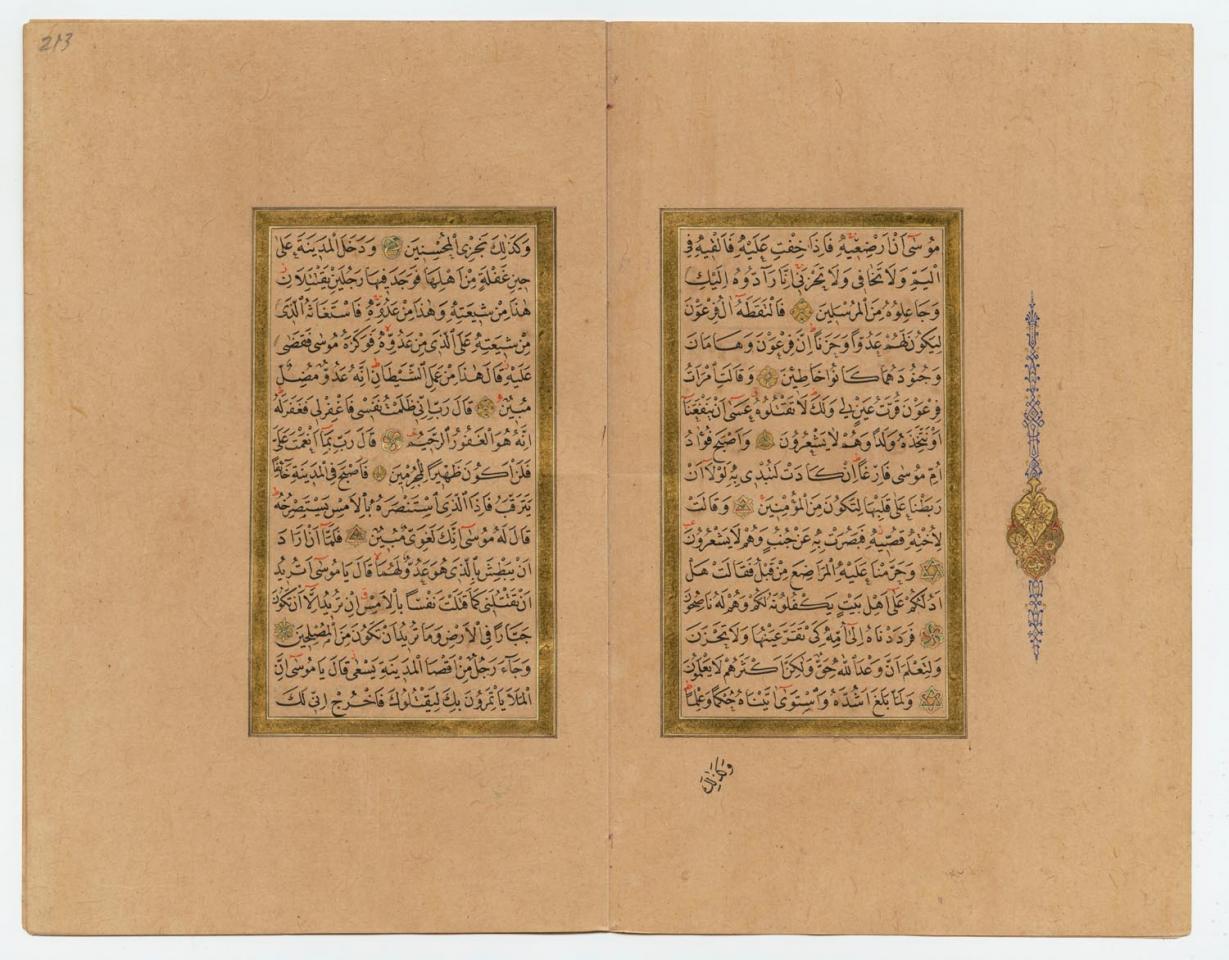 213
مُوسَىٰٓ اَنْ اَرْضِعِيهِ فَاِذَا خِفْتِ عَلَيْهِ فَاَلْقِيهِ فِى
الْيَمِّ وَلَا تَخَافِى وَلَا تَحْزَنِى اِنَّا رَآدُّوهُ اِلَيْكِ
وَجَاعِلُوهُ مِنَ الْمُرْسَلِينَ فَالْتَقَطَهُٓ اٰلُ فِرْعَوْنَ
لِيَكُونَ لَهُمْ عَدُوًّا وَحَزَنًا اِنَّ فِرْعَوْنَ وَهَامَانَ
وَجُنُودَهُمَا كَانُوا خَاطِئِينَ وَقَالَتِ امْرَاَتُ
فِرْعَوْنَ قُرَّتُ عَيْنٍ لِى وَلَكَ لَا تَقْتُلُوهُ عَسَىٰٓ اَنْ يَنْفَعَنَآ
اَوْ نَتَّخِذَهُ وَلَدًا وَهُمْ لَا يَشْعُرُونَ وَاَصْبَحَ فُؤَادُ
اُمِّ مُوسَى فَارِغًا اِنْ كَادَتْ لَتُبْدِى بِهِ لَوْلَٓا اَنْ
رَبَطْنَا عَلَى قَلْبِهَا لِتَكُونَ مِنَ الْمُؤْمِنِينَ وَقَالَتْ
لِاُخْتِهِ قُصِّيهِ فَبَصُرَتْ بِهِ عَنْ جُنُبٍ وَهُمْ لَا يَشْعُرُونَ
وَحَرَّمْنَا عَلَيْهِ الْمَرَاضِعَ مِنْ قَبْلُ فَقَالَتْ هَلْ
اَدُلُّكُمْ عَلَٓى اَهْلِ بَيْتٍ يَكْفُلُونَهُ لَكُمْ وَهُمْ لَهُ نَاصِحُونَ
فَرَدَدْنَاهُ اِلَٓى اُمِّهِ كَىْ تَقَرَّ عَيْنُهَا وَلَا تَحْزَنَ
وَلِتَعْلَمَ اَنَّ وَعْدَ اللّٰهِ حَقٌّ وَلٰكِنَّ اَكْثَرَهُمْ لَا يَعْلَمُونَ
وَلَمَّا بَلَغَ اَشُدَّهُ وَاسْتَوَىٰٓ اٰتَيْنَاهُ حُكْمًا وَعِلْمًا
وَكَذٰلِكَ
وَكَذٰلِكَ نَجْزِى الْمُحْسِنِينَ وَدَخَلَ الْمَدِينَةَ عَلَى
حِينِ غَفْلَةٍ مِنْ اَهْلِهَا فَوَجَدَ فِيهَا رَجُلَيْنِ يَقْتَتِلَانِ
هٰذَا مِنْ شِيعَتِهِ وَهٰذَا مِنْ عَدُوِّهِ فَاسْتَغَاثَهُ الَّذِى
مِنْ شِيعَتِهِ عَلَى الَّذِى مِنْ عَدُوِّهِ فَوَكَزَهُ مُوسَى فَقَضَى
عَلَيْهِ قَالَ هٰذَا مِنْ عَمَلِ الشَّيْطَانِ اِنَّهُ عَدُوٌّ مُضِلٌّ
مُبِينٌ قَالَ رَبِّ اِنِّى ظَلَمْتُ نَفْسِى فَاغْفِرْ لِى فَغَفَرَ لَهُ
اِنَّهُ هُوَ الْغَفُورُ الرَّحِيمُ قَالَ رَبِّ بِمَٓا اَنْعَمْتَ عَلَىَّ
فَلَنْ اَكُونَ ظَهِيرًا لِلْمُجْرِمِينَ فَاَصْبَحَ فِى الْمَدِينَةِ خَآئِفًا
يَتَرَقَّبُ فَاِذَا الَّذِى اسْتَنْصَرَهُ بِالْاَمْسِ يَسْتَصْرِخُهُ
قَالَ لَهُ مُوسَىٰٓ اِنَّكَ لَغَوِىٌّ مُبِينٌ فَلَمَّٓا اَنْ اَرَادَ
اَنْ يَبْطِشَ بِالَّذِى هُوَ عَدُوٌّ لَهُمَا قَالَ يَا مُوسَىٰٓ اَتُرِيدُ
اَنْ تَقْتُلَنِى كَمَا قَتَلْتَ نَفْسًا بِالْاَمْسِ اِنْ تُرِيدُ اِلَّٓا اَنْ تَكُونَ
جَبَّارًا فِى الْاَرْضِ وَمَا تُرِيدُ اَنْ تَكُونَ مِنَ الْمُصْلِحِينَ
وَجَآءَ رَجُلٌ مِنْ اَقْصَا الْمَدِينَةِ يَسْعَى قَالَ يَا مُوسَىٰٓ اِنَّ
الْمَلَاَ يَأْتَمِرُونَ بِكَ لِيَقْتُلُوكَ فَاخْرُجْ اِنِّى لَكَ